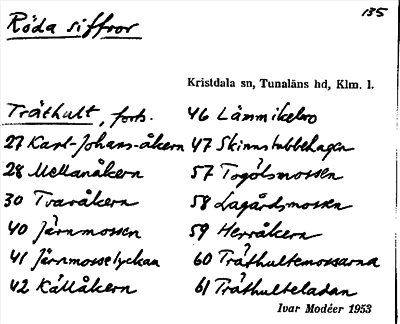 Röda siffror
135
Kristdala sn, Tunaläns hd, Klm. l.
Träthult, forts.
27 Karl-Johans-åkern
28 Mellanåkern
30 Tvaråkern
40 Järnmossen
41 Järnmosselyckan
42 Källåkern
46 Lämmikelvo
47 Skinnstubbehagen
57 Togölsmossen
58 Lagårdsmossen
59 Herråkern
60 Träthultemossarna
61 Träthulteladan
Ivar Modéer 1953